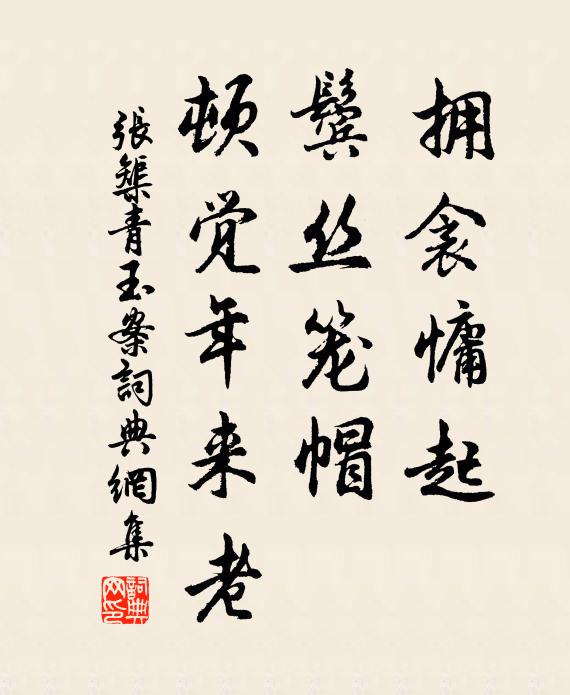 拥衾慵起
鬓丝笼帽
顿觉年来老
張榘青玉案詞典網集
詞典网印